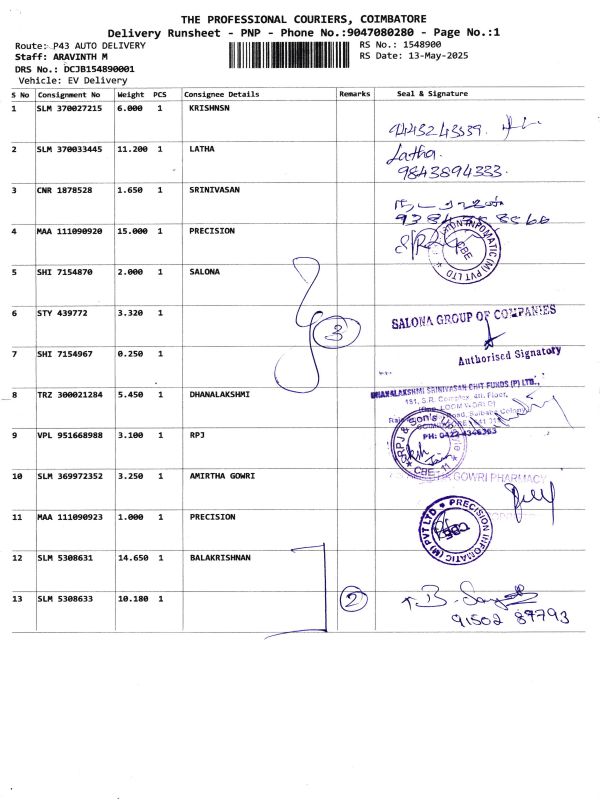 THE PROFESSIONAL COURIERS, COIMBATORE
Delivery Runsheet - PNP - Phone No.:9047080280 - Page No.:1
Route: P43 AUTO DELIVERY
RS No.: 1548900
Staff: ARAVINTH M
RS Date: 13-May-2025
DRS No.: DCJB154890001
Vehicle: EV Delivery
S No Consignment No Weight PCS Consignee Details Remarks Seal & Signature
1 SLM 370027215 6.000 1 KRISHNSN
2 SLM 370033445 11.200 1 LATHA
Latha.
9843894333.
3 CNR 1878528 1.650 1 SRINIVASAN
4 MAA 111090920 15.000 1 PRECISION
INFOMATIC (M) PVT LTD
CBE
5 SHI 7154870 2.000 1 SALONA
6 STY 439772 3.320 1
3
SALONA GROUP OF COMPANIES
7 SHI 7154967 0.250 1
Authorised Signatory
8 TRZ 300021284 5.450 1 DHANALAKSHMI
DHANALAKSHMI SRINIVASAN CHIT FUNDS (P) LTD.,
151, S.R. Complex, 4th Floor,
Road, Saibaba Colony
9 VPL 951668988 3.100 1 RPJ
PH: 0422-4346363
RPJ & Son's
CBE - 11
10 SLM 369972352 3.250 1 AMIRTHA GOWRI
GOWRI PHARMACY
11 MAA 111090923 1.000 1 PRECISION
PRECISION INFOMATIC (M) PVT LTD
CBE
12 SLM 5308631 14.650 1 BALAKRISHNAN
13 SLM 5308633 10.180 1
2
91502 87793